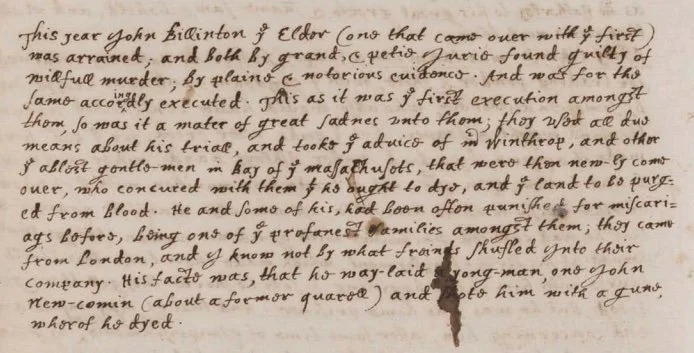 This year John Billinton yͤ Elder (one that came over with yͤ first)
was arrained; and both by grand, & petie Jurie found guilty of
willfull murder; by plaine & notorious euidence. And was for the
same accordingly executed. This as it was yͤ first execution amongst
them, so was it a mater of great sadnes vnto them; they used all due
means about his triall, and tooke yͤ advice of mͬ Winthrop, and other
yͤ ablest gentle-men in bay of yͤ massachusets, that were then new-ly come
over, who concured with them yͭ he ought to dye, and yͤ land to be purg-
ed from blood. He and some of his, had been often punished for miscari-
ags before, being one of yͤ profanest families amongst them; they came
from London, and J know not by what freinds shufled Jnto their
company. His facte was, that he way-laid yong-man, one John
New-comin (about a former quarell) and him with a gune,
wherof he dyed.